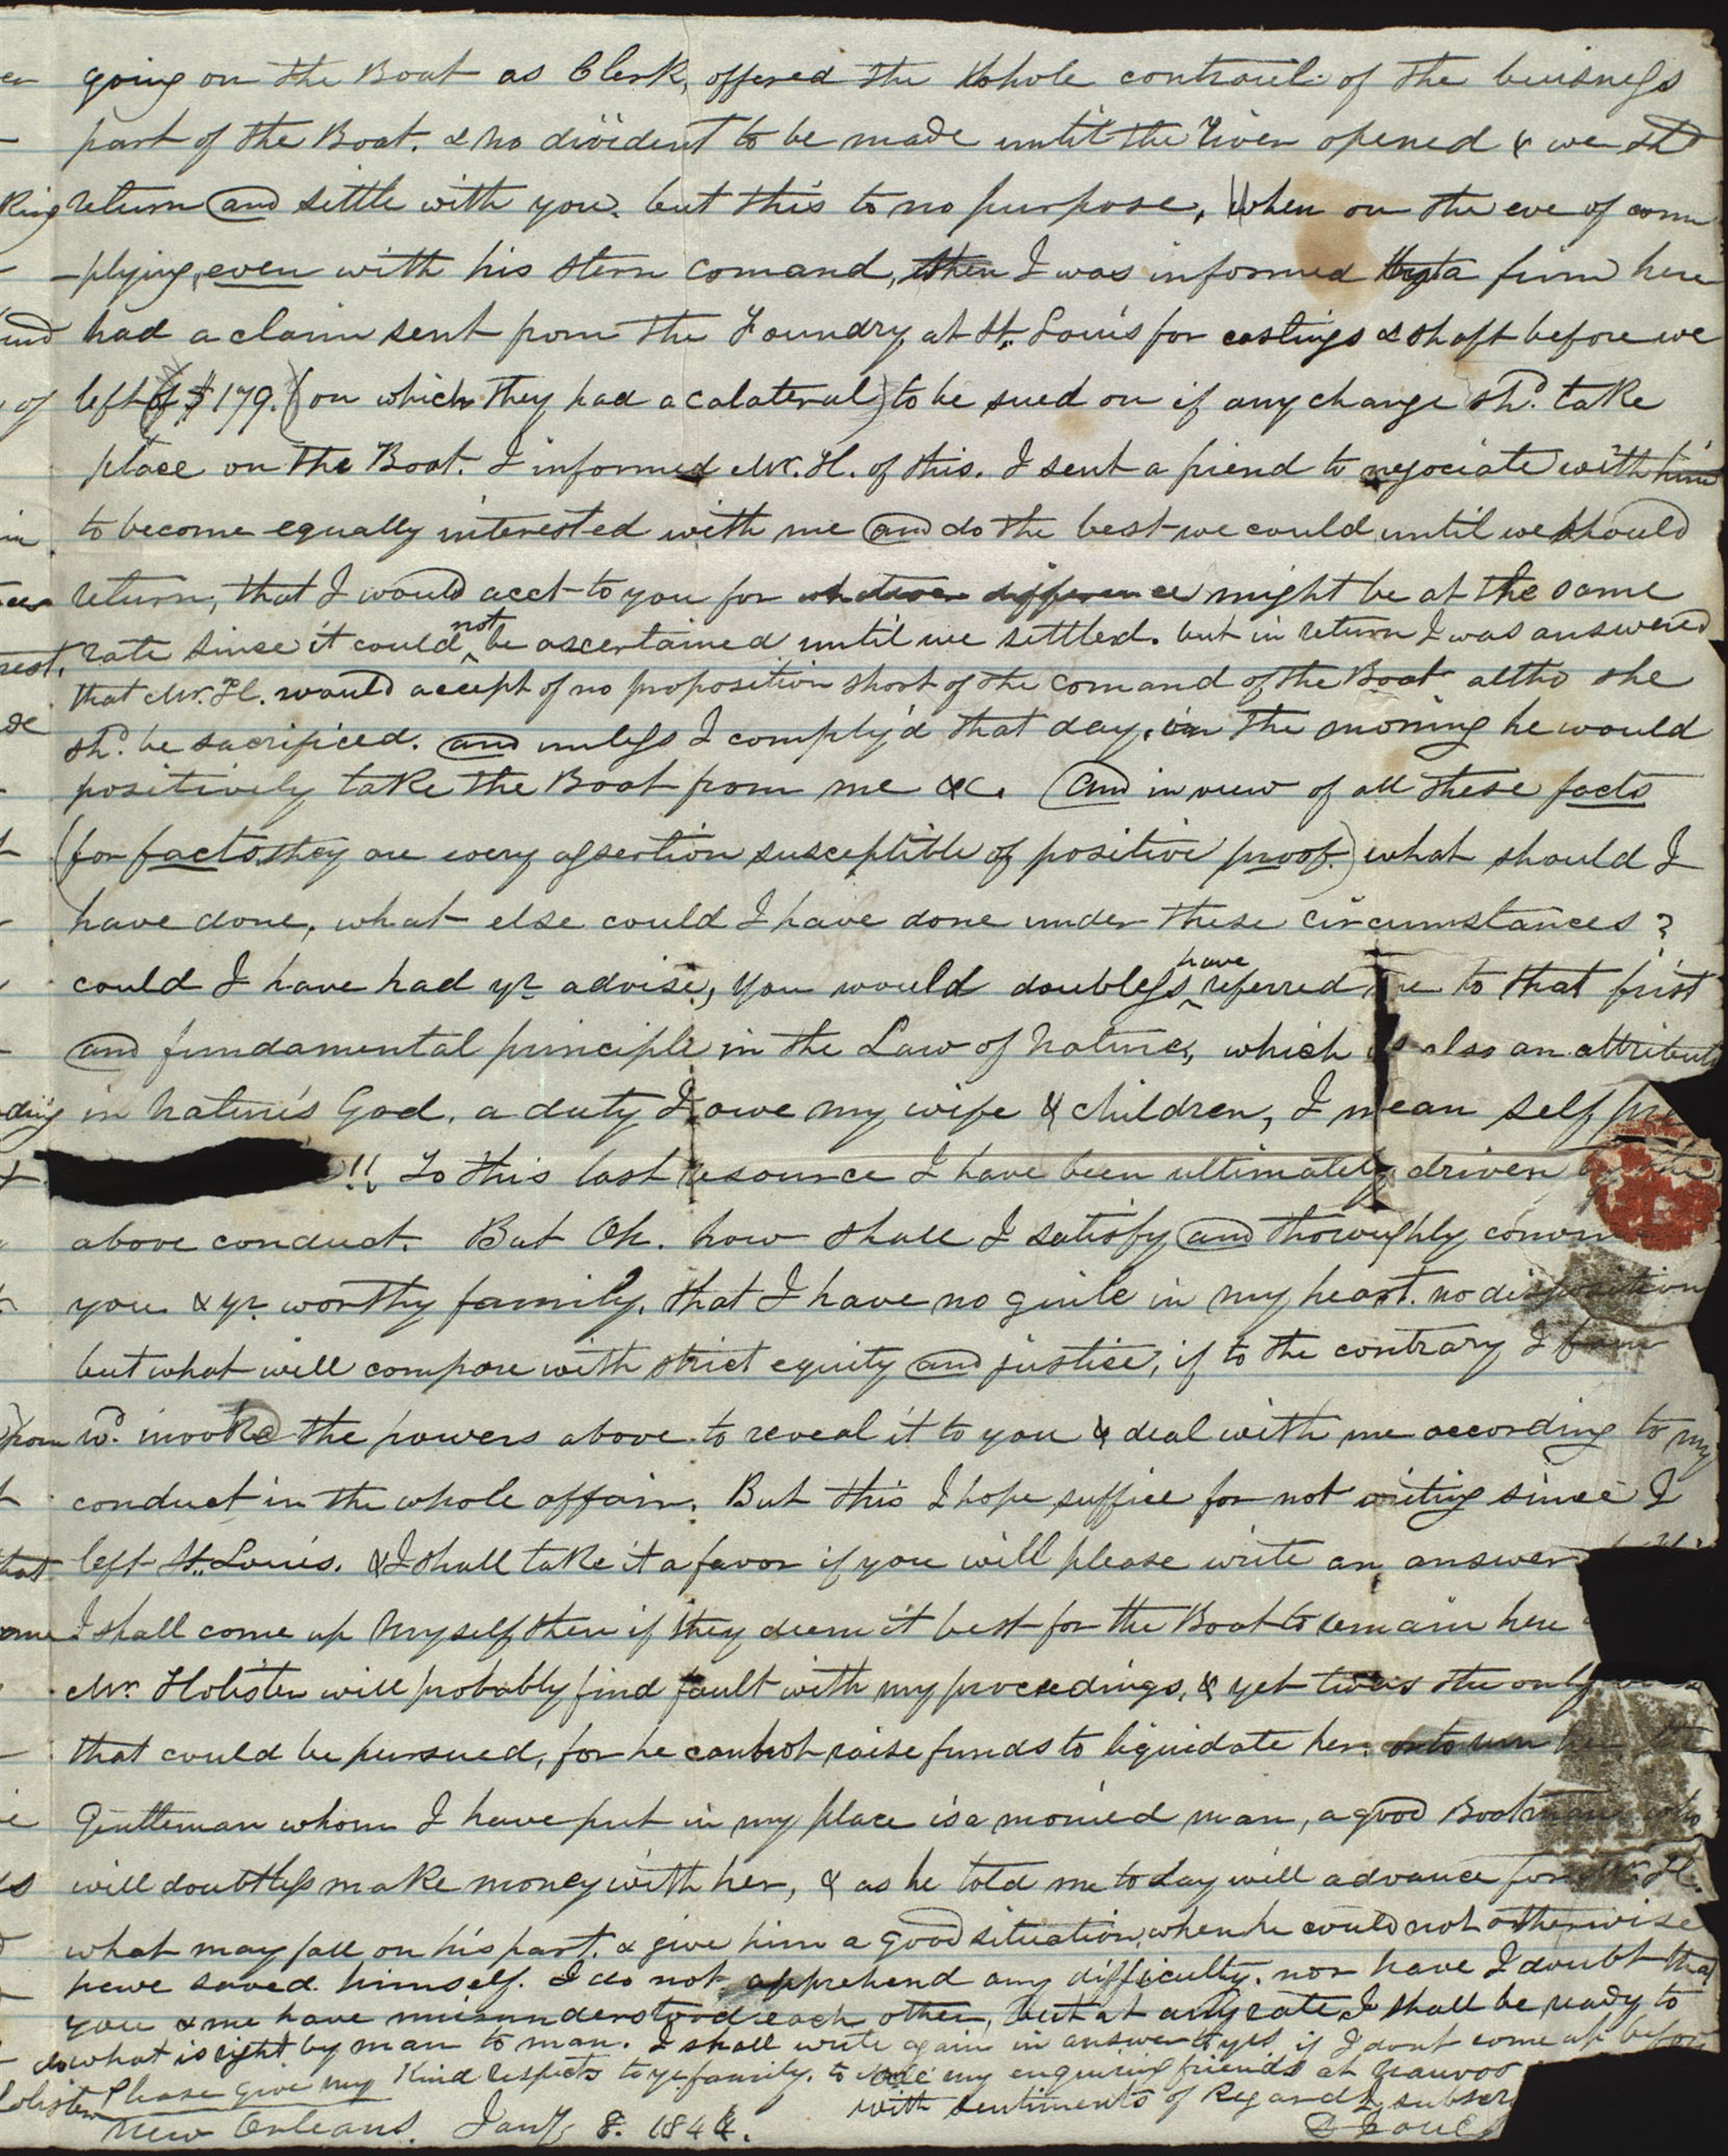 going on the Boat as Clerk, offered the whole controul of the buisness
part of the Boat. & no divident to be made until the River opened & we shd
return and settle with you. but this to no purpose, when on the eve of com
-plying, even with his stern comand, then I was informed that a firm here
had a claim sent from the Foundry at St. Louis for castings & shaft before we
left of $179. (on which they had a calateral) to be sued on if any change shd. take
place on the Boat. I informed Mr. H. of this. I sent a friend to negociate with him
to become equally interested with me and do the best we could until we should
return, that I would acct to you for whatever difference might be at the same
rate since it could not be ascertained until we settled. but in return I was answered
that Mr. H. would accept of no proposition short of the comand of the Boat altho she
shd. be sacrificed. and unless I comply'd that day, in the morning he would
positively take the Boat from me &c. and in view of all these facts
(for facts they are every assertion susceptible of positive proof.) what should I
have done, what else could I have done under these circumstances?
could I have had yr advise, you would doubless have referred me to that frist
and fundamental principle in the Law of Nature, which is also an attribute
in Nature's God. a duty I owe my wife & children, I mean self pre
!! To this last resource I have been ultimately driven by the
above conduct. But Oh. how shall I satisfy and thoroughly convin
you & yr. worthy family, that I have no guile in my heart. no disposition
but what will compare with strict equity and justice, if to the contrary I
wd. invoke the powers above to reveal it to you & deal with me according to my
conduct in the whole affair. But this I hope suffice for not writing since I
left St. Louis. & I shall take it a favor if you will please write an answer
I shall come up Myself then if they deem it best for the Boat to remain here
Mr. Holister will probably find fault with my proceedings, & yet twas the only
that could be pursued, for he cannot raise funds to liquidate her or to run her, the
Gentleman whom I have put in my place is a monied man, a good Boatman who
will doubtless make money with her, & as he told me to day will advance for Mr. H.
what may fall on his part. & give him a good situation, when he could not otherwise
have saved himself. I do not apprehend any difficulty. nor have I doubt that
you & me have misunderstood each other, but at any rate I shall be ready to
do what is right by man to man. I shall write again in answer to yrs if I dont come up before
Please give my Kind respects to yr family. to all my enquiring friends at Nauvoo
with sentiments of Regard I subscr
New Orleans. Jany. 8. 1844.